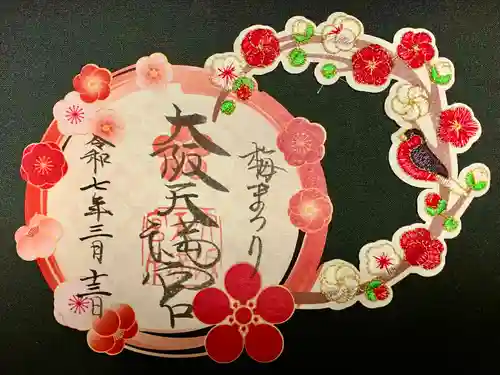 梅まつり
大阪天満宮
令和七年三月十三日